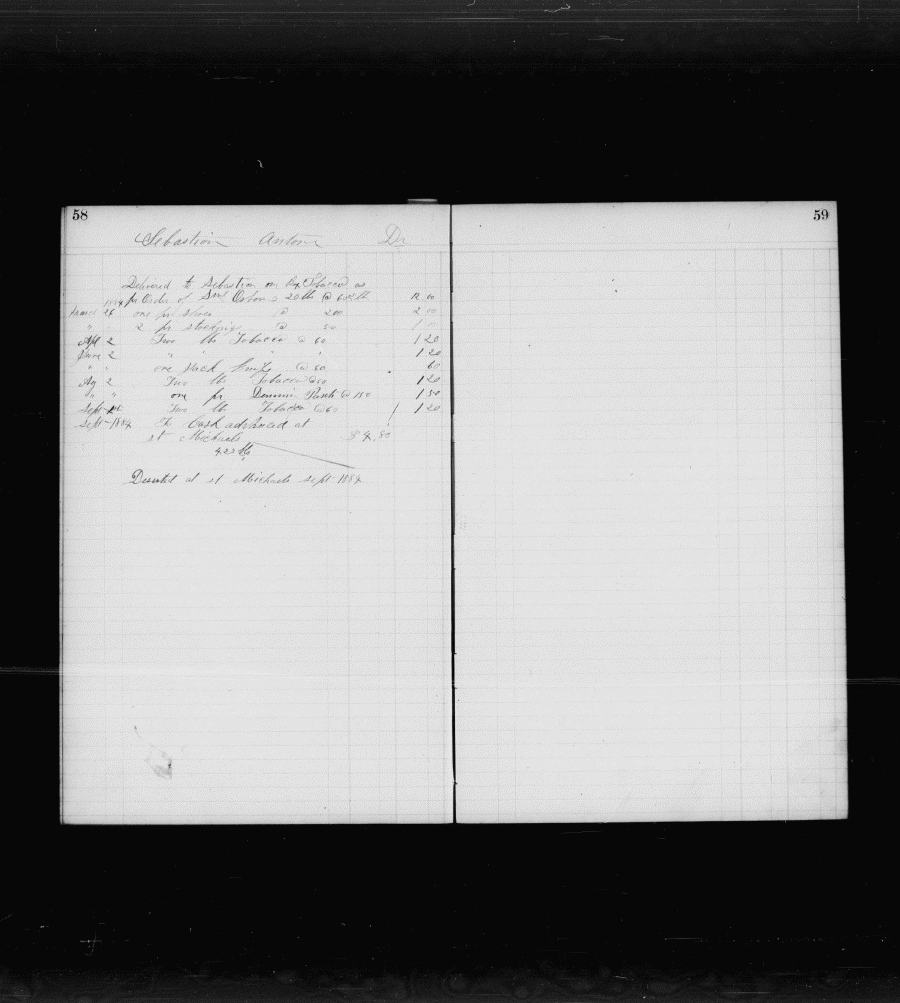 58
59
Sebastian Anton Dr
Delivered to Sebastian one Box Tobacco as
per Order of Saml Osborn 20 lb @ 60 ¢ lb 12 00
1884
March 26 one pr shoes @ 200 2 00
" " 2 pr stockings @ 50 1 00
Apl 2 Two lbs Tobacco @ 60 1 20
June 2 " " " " 1 20
" " one Jack knife @ 60 60
Ag 2 Two lbs Tobacco @ 60 1 20
" " one pr Dennim Pants @ 150 1 50
Sept Two lbs Tobacco @ 60 1 20
Sept 1884 To Cash advanced at
st Michaels $ 4.80
Deserted at st Michaels sept 1884